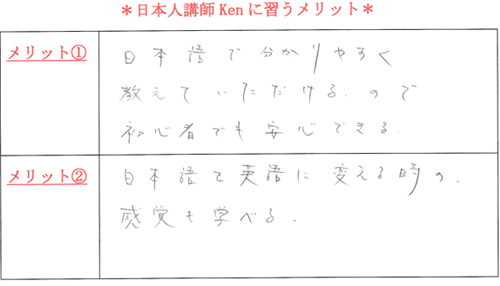 ＊日本人講師 Ken に習うメリット＊
メリット①
日本語で分かりやすく
教えていただける.ので
初心者でも安心できる.
メリット②
日本語を英語に変える時の.
感覚も学べる.